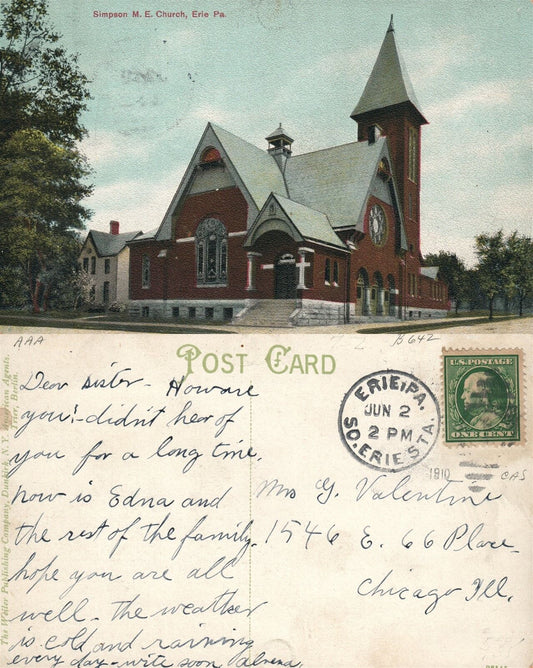 Simpson M. E. Church, Erie Pa.
AAA
B642
POST CARD
Dear sister - Howare
you! - didn't hear of
you for a long time.
how is Edna and
the rest of the family.
hope you are all
well - the weather
is cold, and raining
every day - wite soon Alvena.
ERIE, PA.
JUN 2
2 PM
SO. ERIE STA.
1910
U.S. POSTAGE
ONE CENT
CAS
Mrs G. Valentine
1546 E. 66 Place
Chicago Ill.
Publishing Company,
Agents.
Berlin.